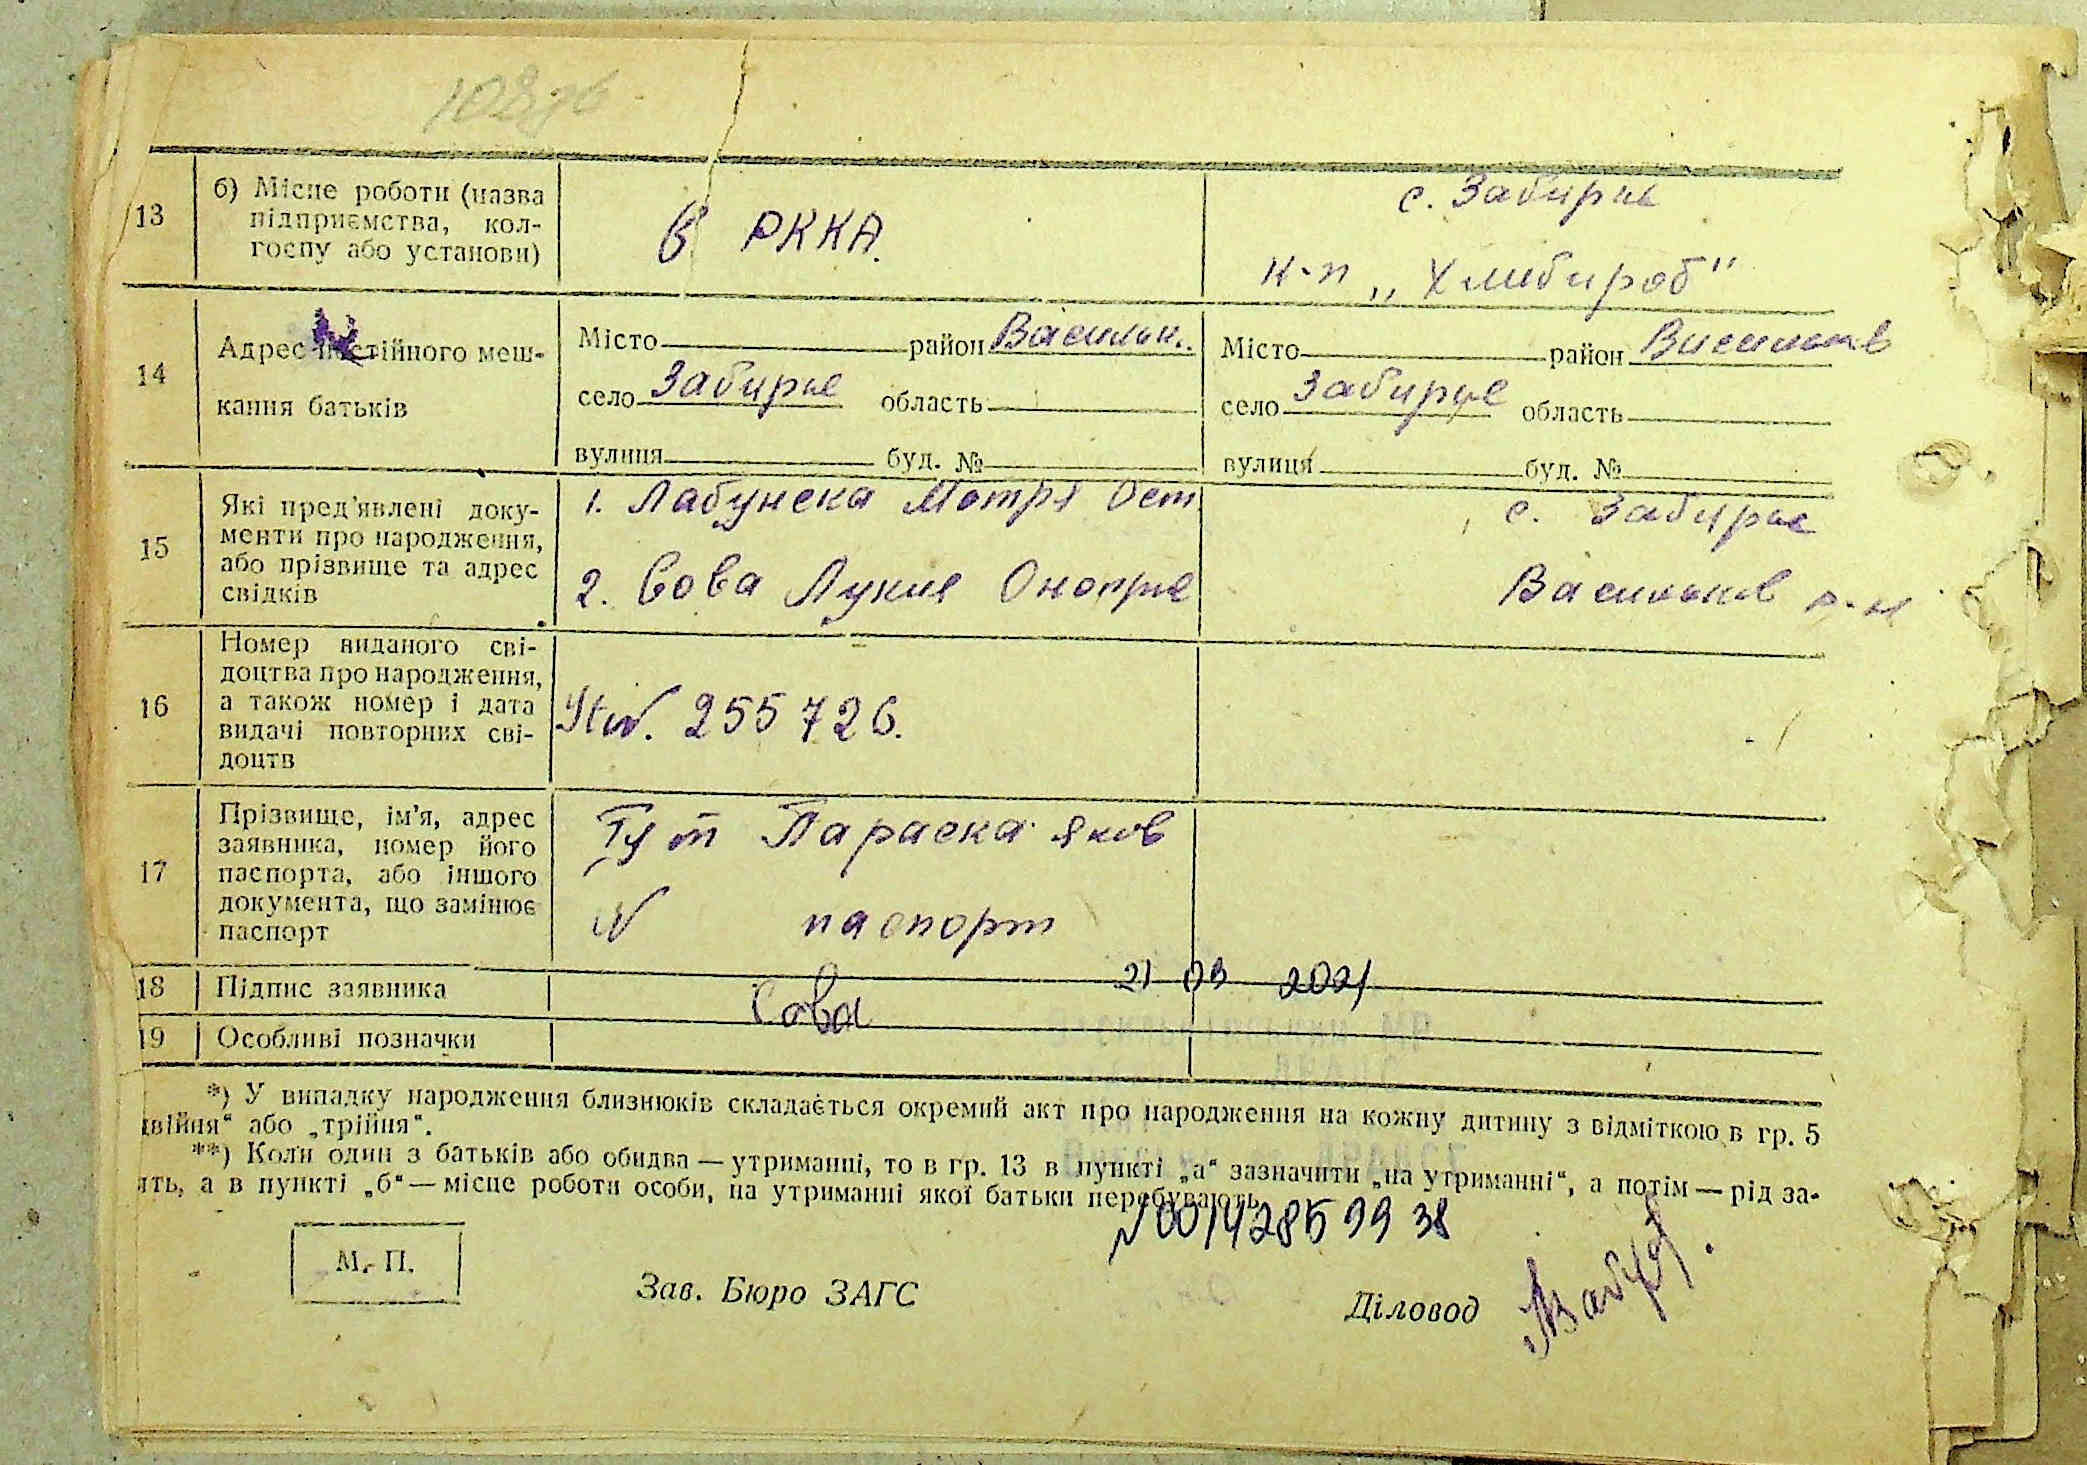 108зв
13
б) Місце роботи (назва
підприємства, кол-
госпу або установи)
в РККА.
с. Забирье
к-п „Хлибироб"
14
Адрес постійного меш-
кання батьків
Місто район Васильк..
село Забирье область
вулиця буд. №
Місто район Васильків
село Забирье область
вулиця буд. №
15
Які пред'явлені доку-
менти про народження,
або прізвище та адрес
свідків
1. Лабунска Мотря Ост
2. Сова Лукия Онопрie
с. Забирье
Васильков р-н
16
Номер виданого сві-
доцтва про народження,
а також номер і дата
видачі повторних сві-
доцтв
№. 255726.
17
Прізвище, ім'я, адрес
заявника, номер його
паспорта, або іншого
документа, що замінює
паспорт
Тут Параска Яков
N паспорт
18
Підпис заявника
Сова
21 09 2021
19
Особливі позначки
*) У випадку народження близнюків складається окремий акт про народження на кожну дитину з відміткою в гр. 5
двійня" або „трійня".
**) Коли один з батьків або обидва — утриманці, то в гр. 13 в пункті „а" зазначити „на утриманні", а потім — рід за-
ять, а в пункті „б" — місце роботи особи, на утриманні якої батьки перебувають.
N00142859938
М. П.
Зав. Бюро ЗАГС
Діловод